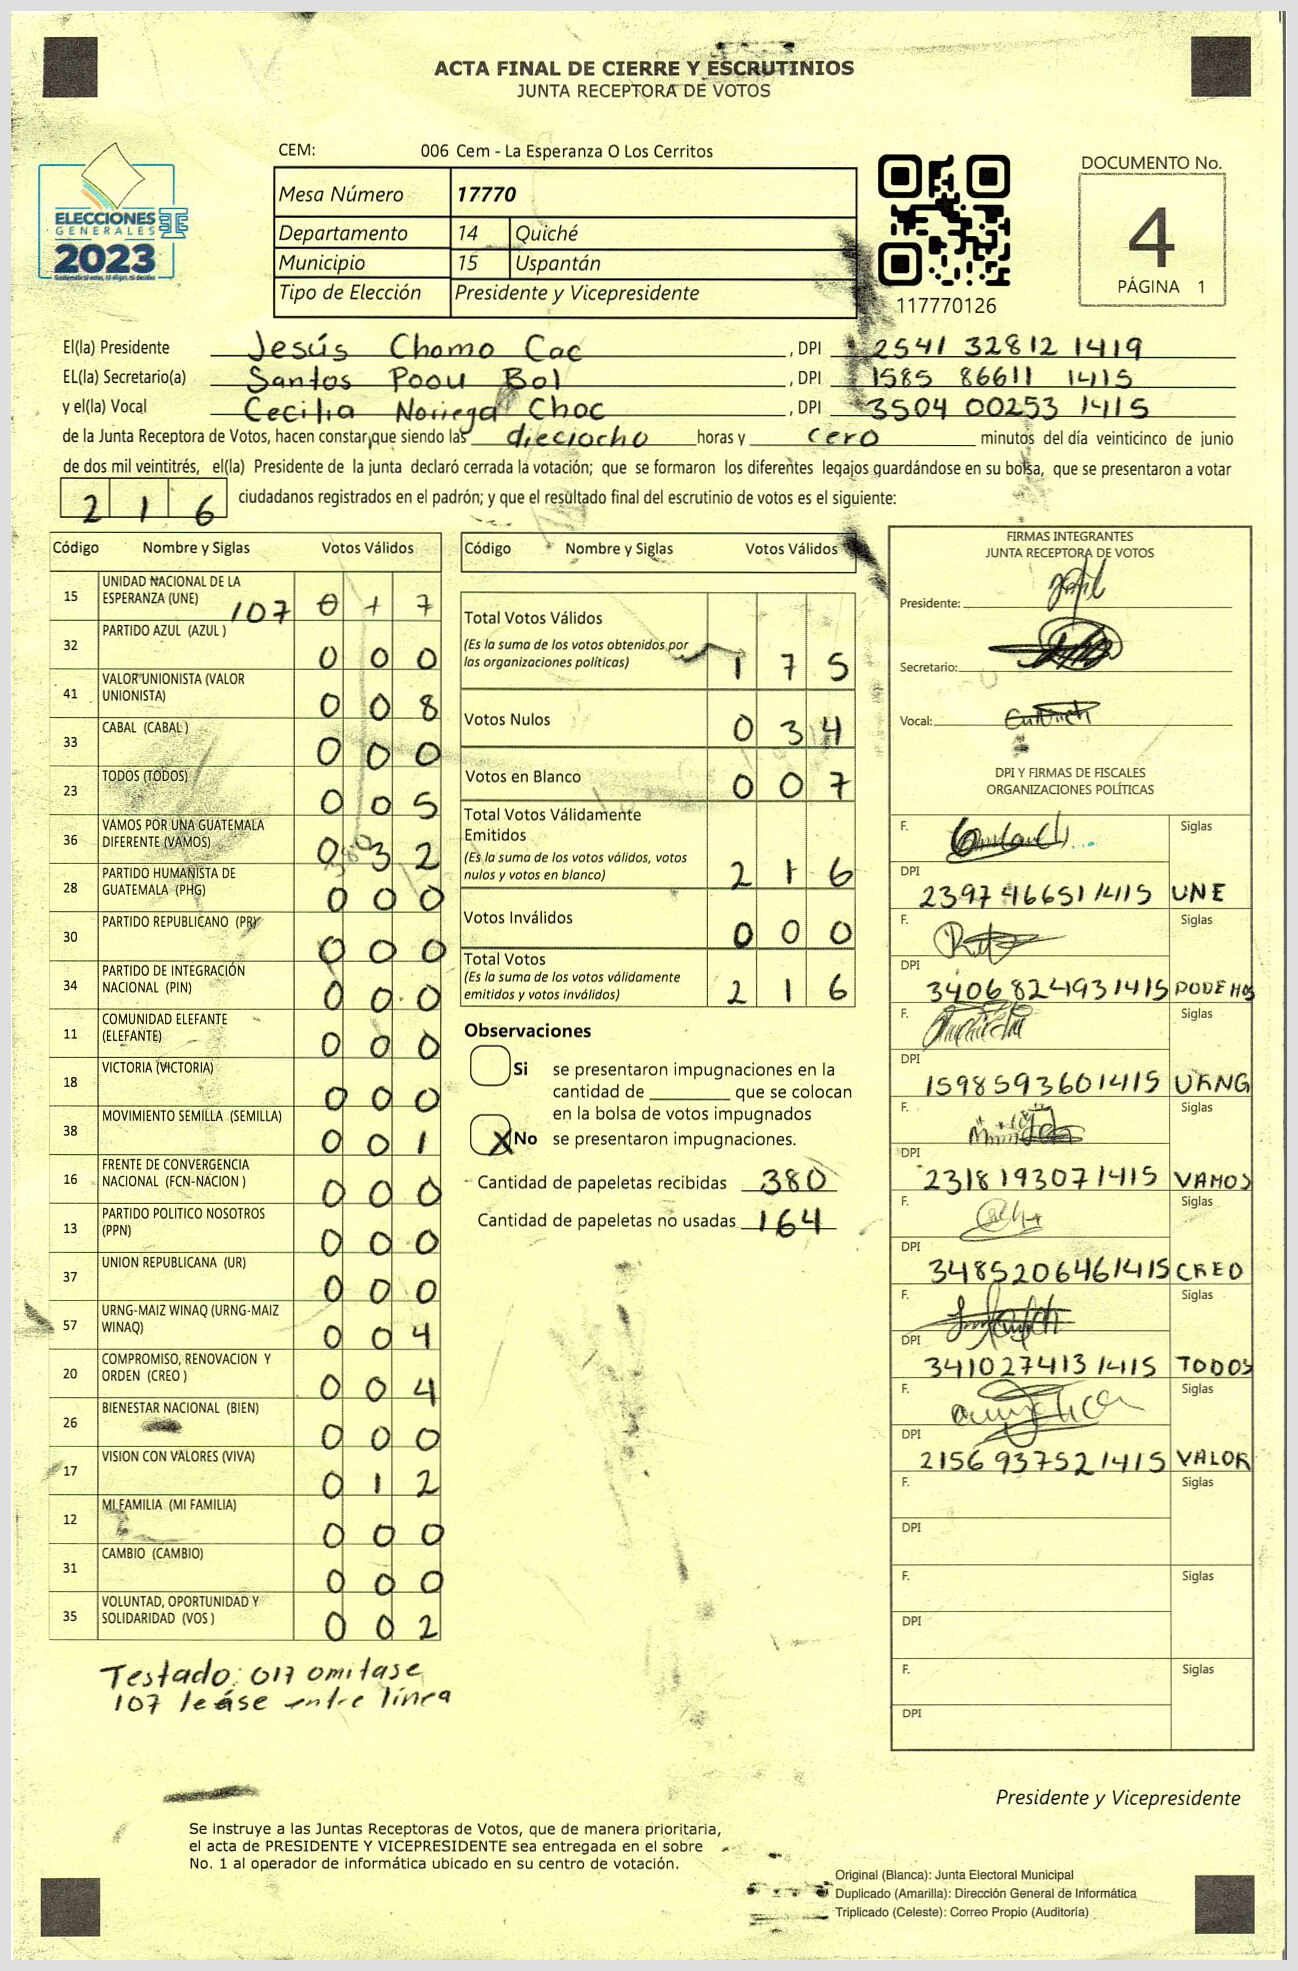 ACTA FINAL DE CIERRE Y ESCRUTINIOS
JUNTA RECEPTORA DE VOTOS
CEM: 006 Cem - La Esperanza O Los Cerritos
ELECCIONES
GENERALES
2023
Mesa Número 17770
Departamento 14 Quiché
Municipio 15 Uspantán
Tipo de Elección Presidente y Vicepresidente
117770126
DOCUMENTO No.
4
PÁGINA 1
El(la) Presidente Jesús Chomo Cac , DPI 2541 32812 1419
EL(la) Secretario(a) Santos Poou Bol , DPI 1585 86611 1415
y el(la) Vocal Cecilia Noriega Choc , DPI 3504 00253 1415
de la Junta Receptora de Votos, hacen constar que siendo las dieciocho horas y cero minutos del día veinticinco de junio
de dos mil veintitrés, el(la) Presidente de la junta declaró cerrada la votación; que se formaron los diferentes legajos guardándose en su bolsa, que se presentaron a votar
216 ciudadanos registrados en el padrón; y que el resultado final del escrutinio de votos es el siguiente:
Código Nombre y Siglas Votos Válidos
15 UNIDAD NACIONAL DE LA ESPERANZA (UNE) 107 0 1 7
32 PARTIDO AZUL (AZUL ) 0 0 0
41 VALOR UNIONISTA (VALOR UNIONISTA) 0 0 8
33 CABAL (CABAL ) 0 0 0
23 TODOS (TODOS) 0 0 5
36 VAMOS POR UNA GUATEMALA DIFERENTE (VAMOS) 0 3 2
28 PARTIDO HUMANISTA DE GUATEMALA (PHG) 0 0 0
30 PARTIDO REPUBLICANO (PR) 0 0 0
34 PARTIDO DE INTEGRACIÓN NACIONAL (PIN) 0 0 0
11 COMUNIDAD ELEFANTE (ELEFANTE) 0 0 0
18 VICTORIA (VICTORIA) 0 0 0
38 MOVIMIENTO SEMILLA (SEMILLA) 0 0 1
16 FRENTE DE CONVERGENCIA NACIONAL (FCN-NACION ) 0 0 0
13 PARTIDO POLITICO NOSOTROS (PPN) 0 0 0
37 UNION REPUBLICANA (UR) 0 0 0
57 URNG-MAIZ WINAQ (URNG-MAIZ WINAQ) 0 0 4
20 COMPROMISO, RENOVACION Y ORDEN (CREO ) 0 0 4
26 BIENESTAR NACIONAL (BIEN) 0 0 0
17 VISION CON VALORES (VIVA) 0 1 2
12 MI FAMILIA (MI FAMILIA) 0 0 0
31 CAMBIO (CAMBIO) 0 0 0
35 VOLUNTAD, OPORTUNIDAD Y SOLIDARIDAD (VOS ) 0 0 2
Testado: 017 omitase
107 leáse entre línea
Código Nombre y Siglas Votos Válidos
Total Votos Válidos
(Es la suma de los votos obtenidos por
las organizaciones políticas) 1 7 5
Votos Nulos 0 3 4
Votos en Blanco 0 0 7
Total Votos Válidamente
Emitidos
(Es la suma de los votos válidos, votos
nulos y votos en blanco) 2 1 6
Votos Inválidos 0 0 0
Total Votos
(Es la suma de los votos válidamente
emitidos y votos inválidos) 2 1 6
Observaciones
Si se presentaron impugnaciones en la
cantidad de ________ que se colocan
en la bolsa de votos impugnados
X No se presentaron impugnaciones.
Cantidad de papeletas recibidas 380
Cantidad de papeletas no usadas 164
FIRMAS INTEGRANTES
JUNTA RECEPTORA DE VOTOS
Presidente:
Secretario:
Vocal:
DPI Y FIRMAS DE FISCALES
ORGANIZACIONES POLÍTICAS
F. Siglas
DPI 2397466511415 UNE
F. Siglas
DPI 3406824931415 PODEMOS
F. Siglas
DPI 1598593601415 URNG
F. Siglas
DPI 2318193071415 VAMOS
F. Siglas
DPI 3485206461415 CREO
F. Siglas
DPI 3410274131415 TODOS
F. Siglas
DPI 2156937521415 VALOR
F. Siglas
DPI
F. Siglas
DPI
F. Siglas
DPI
Presidente y Vicepresidente
Se instruye a las Juntas Receptoras de Votos, que de manera prioritaria,
el acta de PRESIDENTE Y VICEPRESIDENTE sea entregada en el sobre
No. 1 al operador de informática ubicado en su centro de votación.
Original (Blanca): Junta Electoral Municipal
Duplicado (Amarilla): Dirección General de Informática
Triplicado (Celeste): Correo Propio (Auditoría)